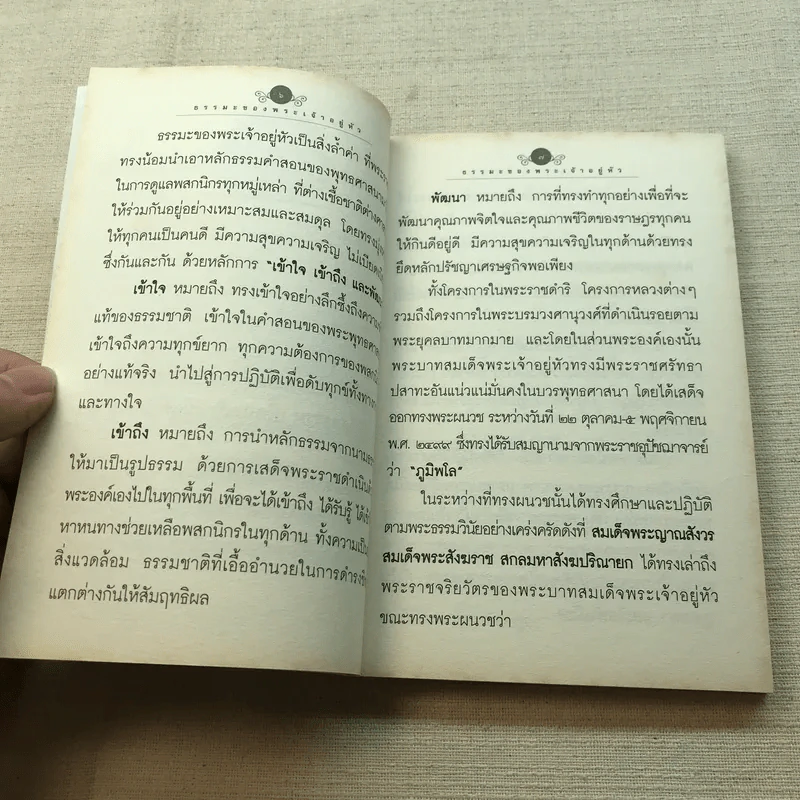 ๖
ธรรมะของพระเจ้าอยู่หัว
ธรรมะของพระเจ้าอยู่หัวเป็นสิ่งล้ำค่า ที่พระ
ทรงน้อมนำเอาหลักธรรมคำสอนของพุทธศาสนามา
ในการดูแลพสกนิกรทุกหมู่เหล่า ที่ต่างเชื้อชาติต่างศาส
ให้ร่วมกันอยู่อย่างเหมาะสมและสมดุล โดยทรงมุ่ง
ให้ทุกคนเป็นคนดี มีความสุขความเจริญ ไม่เบียดเบียน
ซึ่งกันและกัน ด้วยหลักการ "เข้าใจ เข้าถึง และพัฒ
เข้าใจ หมายถึง ทรงเข้าใจอย่างลึกซึ้งถึงความ
แท้ของธรรมชาติ เข้าใจในคำสอนของพระพุทธศาส
เข้าใจถึงความทุกข์ยาก ทุกความต้องการของพสกนิ
อย่างแท้จริง นำไปสู่การปฏิบัติเพื่อดับทุกข์ทั้งทาง
และทางใจ
เข้าถึง หมายถึง การนำหลักธรรมจากนามธรร
ให้มาเป็นรูปธรรม ด้วยการเสด็จพระราชดำเนิน
พระองค์เองไปในทุกพื้นที่ เพื่อจะได้เข้าถึง ได้รับรู้ ได้เข้
หาหนทางช่วยเหลือพสกนิกรในทุกด้าน ทั้งความเป็น
สิ่งแวดล้อม ธรรมชาติที่เอื้ออำนวยในการดำรงชี
แตกต่างกันให้สัมฤทธิผล
๗
ธรรมะของพระเจ้าอยู่หัว
พัฒนา หมายถึง การที่ทรงทำทุกอย่างเพื่อที่จะ
พัฒนาคุณภาพจิตใจและคุณภาพชีวิตของราษฎรทุกคน
ให้กินดีอยู่ดี มีความสุขความเจริญในทุกด้านด้วยทรง
ยึดหลักปรัชญาเศรษฐกิจพอเพียง
ทั้งโครงการในพระราชดำริ โครงการหลวงต่างๆ
รวมถึงโครงการในพระบรมวงศานุวงศ์ที่ดำเนินรอยตาม
พระยุคลบาทมากมาย และโดยในส่วนพระองค์เองนั้น
พระบาทสมเด็จพระเจ้าอยู่หัวทรงมีพระราชศรัทธา
ปสาทะอันแน่วแน่มั่นคงในบวรพุทธศาสนา โดยได้เสด็จ
ออกทรงพระผนวช ระหว่างวันที่ ๒๒ ตุลาคม-๕ พฤศจิกายน
พ.ศ. ๒๔๙๙ ซึ่งทรงได้รับสมญานามจากพระราชอุปัชฌาจารย์
ว่า "ภูมิพโล"
ในระหว่างที่ทรงผนวชนั้นได้ทรงศึกษาและปฏิบัติ
ตามพระธรรมวินัยอย่างเคร่งครัดดังที่ สมเด็จพระญาณสังวร
สมเด็จพระสังฆราช สกลมหาสังฆปริณายก ได้ทรงเล่าถึง
พระราชจริยวัตรของพระบาทสมเด็จพระเจ้าอยู่หัว
ขณะทรงพระผนวชว่า